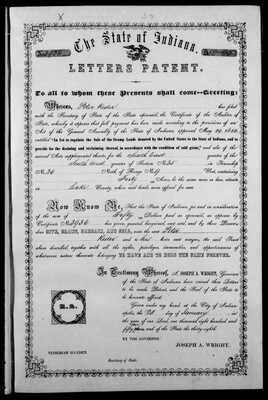 The State of Indiana.
LETTERS PATENT.
To all to whom these Presents shall come--Greeting:
Whereas, Peter has filed
with the Secretary of State of the State aforesaid, the Certificate of the Auditor of
State, whereby it appears that full payment has been made according to the provisions of an
Act of the General Assembly of the State of Indiana, approved May 29, 1852,
entitled "An Act to regulate the Sale of the Swamp Lands donated by the United States to the State of Indiana, and to
provide for the draining and reclaiming thereof, in accordance with the condition of said grant;" and also of the
several Acts supplemental thereto for the South East quarter of the
South West quarter of Section No. 35 in Township
No. 36 North of Range No. West, containing
Forty Acres, be the same more or less, situate
in Lake County, where said lands were offered for sale
Now Know Ye, That the State of Indiana, for and in consideration
of the sum of Fifty Dollars paid as aforesaid, as appears by
Certificate No. has granted bargained and sold, and by these Presents,
does GIVE, GRANT, BARGAIN, AND SELL, unto the said Peter
and to his heirs and assigns, the said Tract
above described, together with all the rights, privileges, immunities, and appurtenances of
whatsoever nature thereunto belonging TO HAVE AND TO HOLD THE SAME FOREVER.
In Testimony Whereof, I, JOSEPH A. WRIGHT, Governor
of the State of Indiana have caused these Letters
to be made Patent, and the Seal of the State to
be hereunto affixed.
Given under my hand at the City of Indianapolis, the day of January in
the year of our Lord, one thousand eight hundred and
fifty and of the State the thirty-eighth
L.S.
BY THE GOVERNOR:
JOSEPH A. WRIGHT.
Secretary of State.